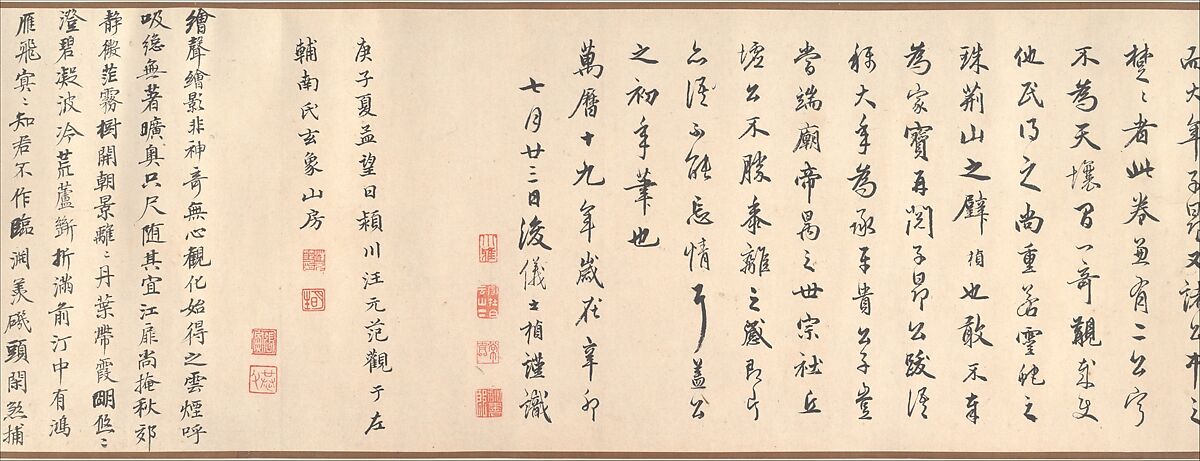 而大年子昂又諸公中之
楚楚者此卷並有二公字
不為天壤間一奇觀哉使
他氏得之尚重若靈蛇之
珠荊山之璧況
也敢不奉
為家寶再閱子昂公跋語
稱大年為承平貴公子豈
嘗端廟帝昺之世宗社丘
墟公不勝黍離之感即片
言語不能忘情耳蓋公
之初年筆也
萬曆十九年歲在辛卯
七月廿三日後儀士楨謹識
庚子夏孟望日穎川汪元范觀于左
輔南氏玄象山房
繪聲繪影非神奇無心觀化始得之雲煙呼
吸總無著曠奧只尺隨其宜江扉尚掩秋郊
靜微茫霧樹開朝景離〻丹葉帶霞明悠〻
澄碧凝波冷荒蘆斷折滿前汀中有鴻
雁飛冥〻知君不作臨淵羨磯頭閑煞捕